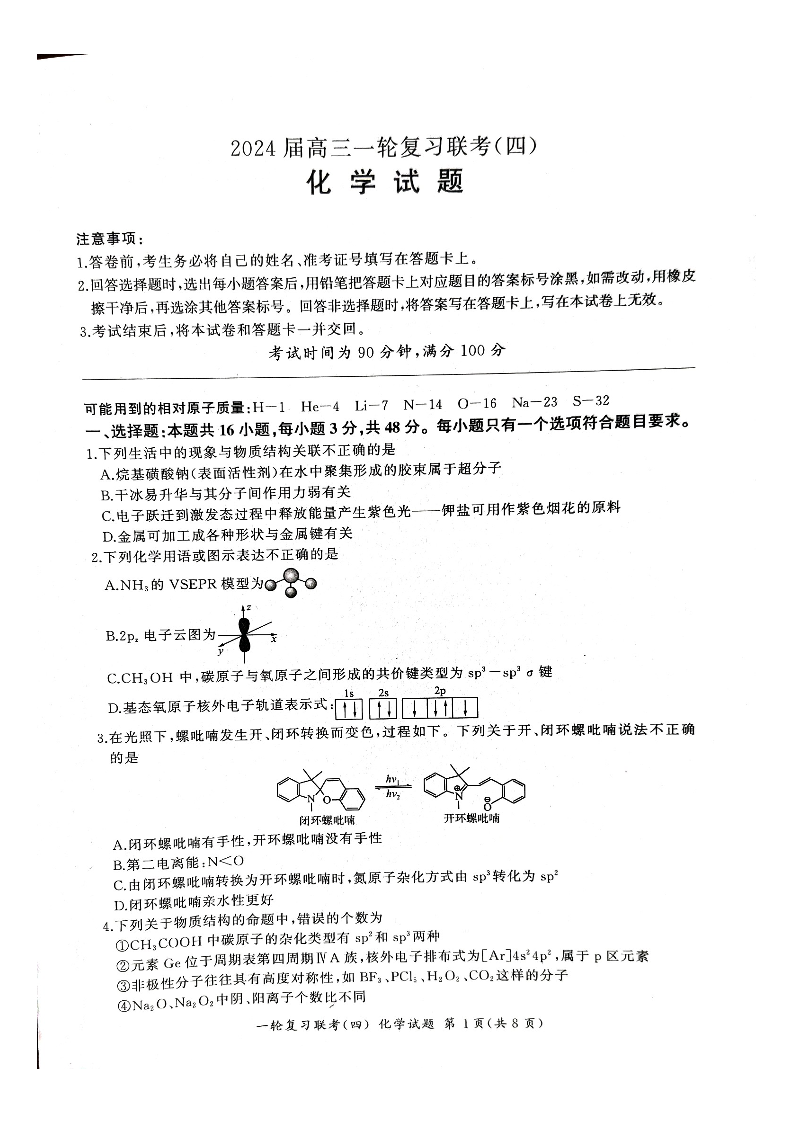 2024届高三一轮复习联考(四)
化学试题
注意事项:
1.答卷前,考生务必将自己的姓名、准考证号填写在答题卡上。
2.回答选择题时,选出每小题答案后,用铅笔把答题卡上对应题目的答案标号涂黑,如需改动,用橡皮
擦干净后,再选涂其他答案标号。回答非选择题时,将答案写在答题卡上,写在本试卷上无效。
3.考试结束后,将本试卷和答题卡一并交回。
考试时间为90分钟,满分100分
可能用到的相对原子质量:H-1 He-4 Li-7 N-14 O-16 Na-23 S-32
一、选择题:本题共16小题,每小题3分,共48分。每小题只有一个选项符合题目要求。
1.下列生活中的现象与物质结构关联不正确的是
A.烷基磺酸钠(表面活性剂)在水中聚集形成的胶束属于超分子
B.干冰易升华与其分子间作用力弱有关
C.电子跃迁到激发态过程中释放能量产生紫色光——钾盐可用作紫色烟花的原料
D.金属可加工成各种形状与金属键有关
2.下列化学用语或图示表达不正确的是
A.NH₃的VSEPR模型为
z
B.2p_z电子云图为
x
y
C.CH₃OH中,碳原子与氧原子之间形成的共价键类型为sp³-sp³ σ键
1s 2s 2p
D.基态氧原子核外电子轨道表示式:↑↓ ↑↓ ↓ ↓↑ ↓
3.在光照下,螺吡喃发生开、闭环转换而变色,过程如下。下列关于开、闭环螺吡喃说法不正确
的是
hv₁
hv₂
N O N O
闭环螺吡喃 开环螺吡喃
A.闭环螺吡喃有手性,开环螺吡喃没有手性
B.第二电离能:N<O
C.由闭环螺吡喃转换为开环螺吡喃时,氮原子杂化方式由sp³转化为sp²
D.闭环螺吡喃亲水性更好
4.下列关于物质结构的命题中,错误的个数为
①CH₃COOH中碳原子的杂化类型有sp²和sp³两种
②元素Ge位于周期表第四周期ⅣA族,核外电子排布式为[Ar]4s²4p²,属于p区元素
③非极性分子往往具有高度对称性,如BF₃、PCl₅、H₂O₂、CO₂这样的分子
④Na₂O、Na₂O₂中阴、阳离子个数比不同
一轮复习联考(四) 化学试题 第1页(共8页)